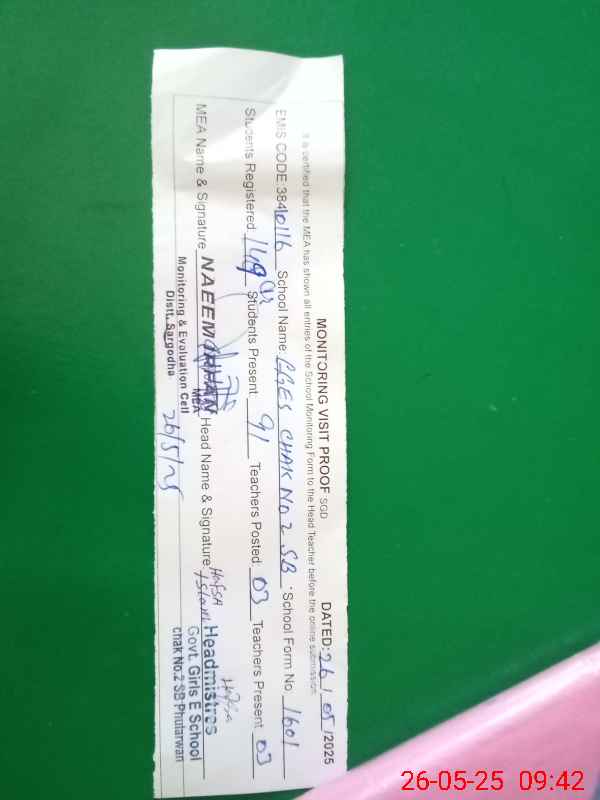 MONITORING VISIT PROOF SGD DATED: 26/05/2025
It is certified that the MEA has shown all entries of the School Monitoring Form to the Head Teacher before the online submission.
EMIS CODE 38410116 School Name: GGES CHAK NO 2 SB School Form No. 1601
Students Registered: 149 Students Present 91 Teachers Posted: 03 Teachers Present 03
MEA Name & Signature NAEEM Head Name & Signature Hafsa
Headmistres
MEA
Govt. Girls E School
Monitoring & Evaluation Cell chak No.2 SB Phularwan
Distt. Sargodha
26/5/25
26-05-25 09:42